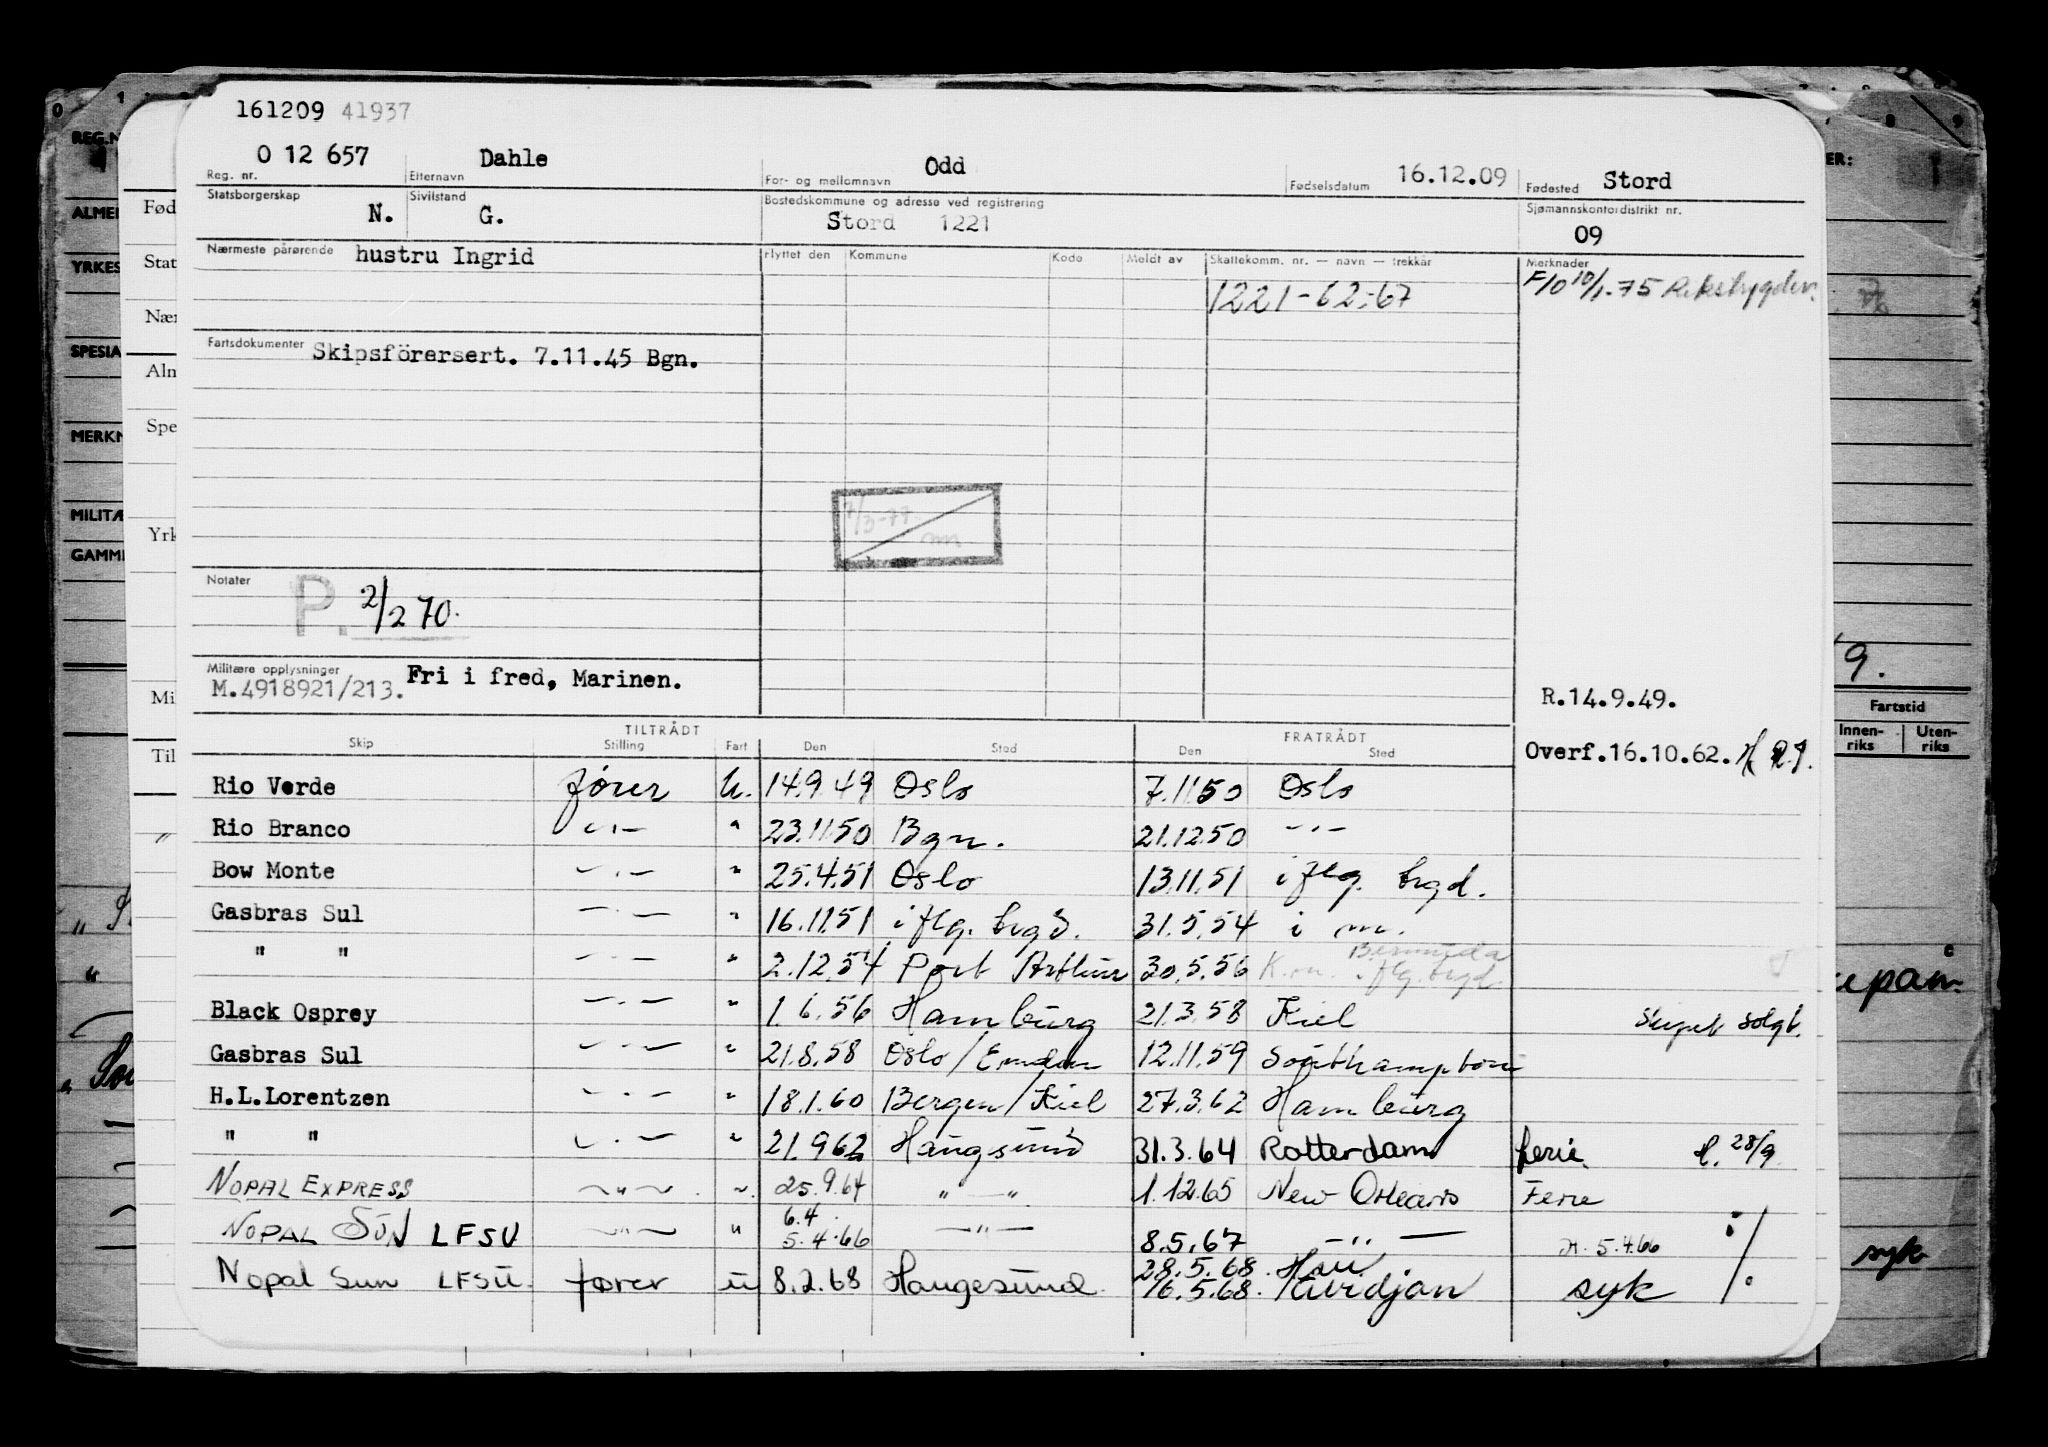 161209 41937
O 12 657 Dahle Odd 16.12.09 Stord
Reg. nr. Etternavn For- og mellomnavn Fødselsdatum Fødested
Statsborgerskap N. Sivilstand G. Bostedskommune og adresse ved registrering Stord 1221 Sjømannskontordistrikt nr. 09
Nærmeste pårørende hustru Ingrid Flyttet den Kommune Kode Meldt av Skattekomm. nr. — navn — trekkår Merknader
1221-62-67 F/O 10/1-75
Fartsdokumenter Skipsförersert. 7.11.45 Bgn.
7/3-77
m
Notater P. 2/2 70.
Militære opplysninger Fri i fred, Marinen.
M.4918921/213.
R.14.9.49.
TILTRÅDT FRATRÅDT
Skip Stilling Fart Den Sted Den Sted
Overf.16.10.62.
Rio Verde fører u. 14.9.49 Oslo 7.11.50 Oslo
Rio Branco —"— " 23.11.50 Bgn. 21.12.50 —"—
Bow Monte —"— " 25.4.51 Oslo 13.11.51 i flg. brgd.
Gasbras Sul —"— " 16.11.51 i flg. brgd. 31.5.54 i m.
" " —"— " 2.12.54 Port Arthur 30.5.56 K.m. Bermuda i flg. brgd.
Black Osprey —"— " 1.6.56 Hamburg 21.3.58 Kiel Skipet solgt.
Gasbras Sul —"— " 21.8.58 Oslo/Emden 12.11.59 Southampton
H.L.Lorentzen —"— " 18.1.60 Bergen/Kiel 27.3.62 Hamburg
" " —"— " 21.9.62 Haugesund 31.3.64 Rotterdam ferie. H. 28/9
NOPAL EXPRESS —"— " 25.9.64 " — " 1.12.65 New Orleans Ferie
NOPAL SUN LFSU —"— " 6.4. 5.4.66 —"— 8.5.67 —"— H. 5.4.66
Nopal Sun LFSU. fører u 8.2.68 Haugesund 28.5.68. 16.5.68. syk
REG.N
ALMEN
YRKES
SPESIA
MERKN
MILITÆ
GAMM
Fød
Stat
Nær
Aln
Spe
Yrk
Mi
Til
ER:
9.
Fartstid
Innen-riks Uten-riks
syk